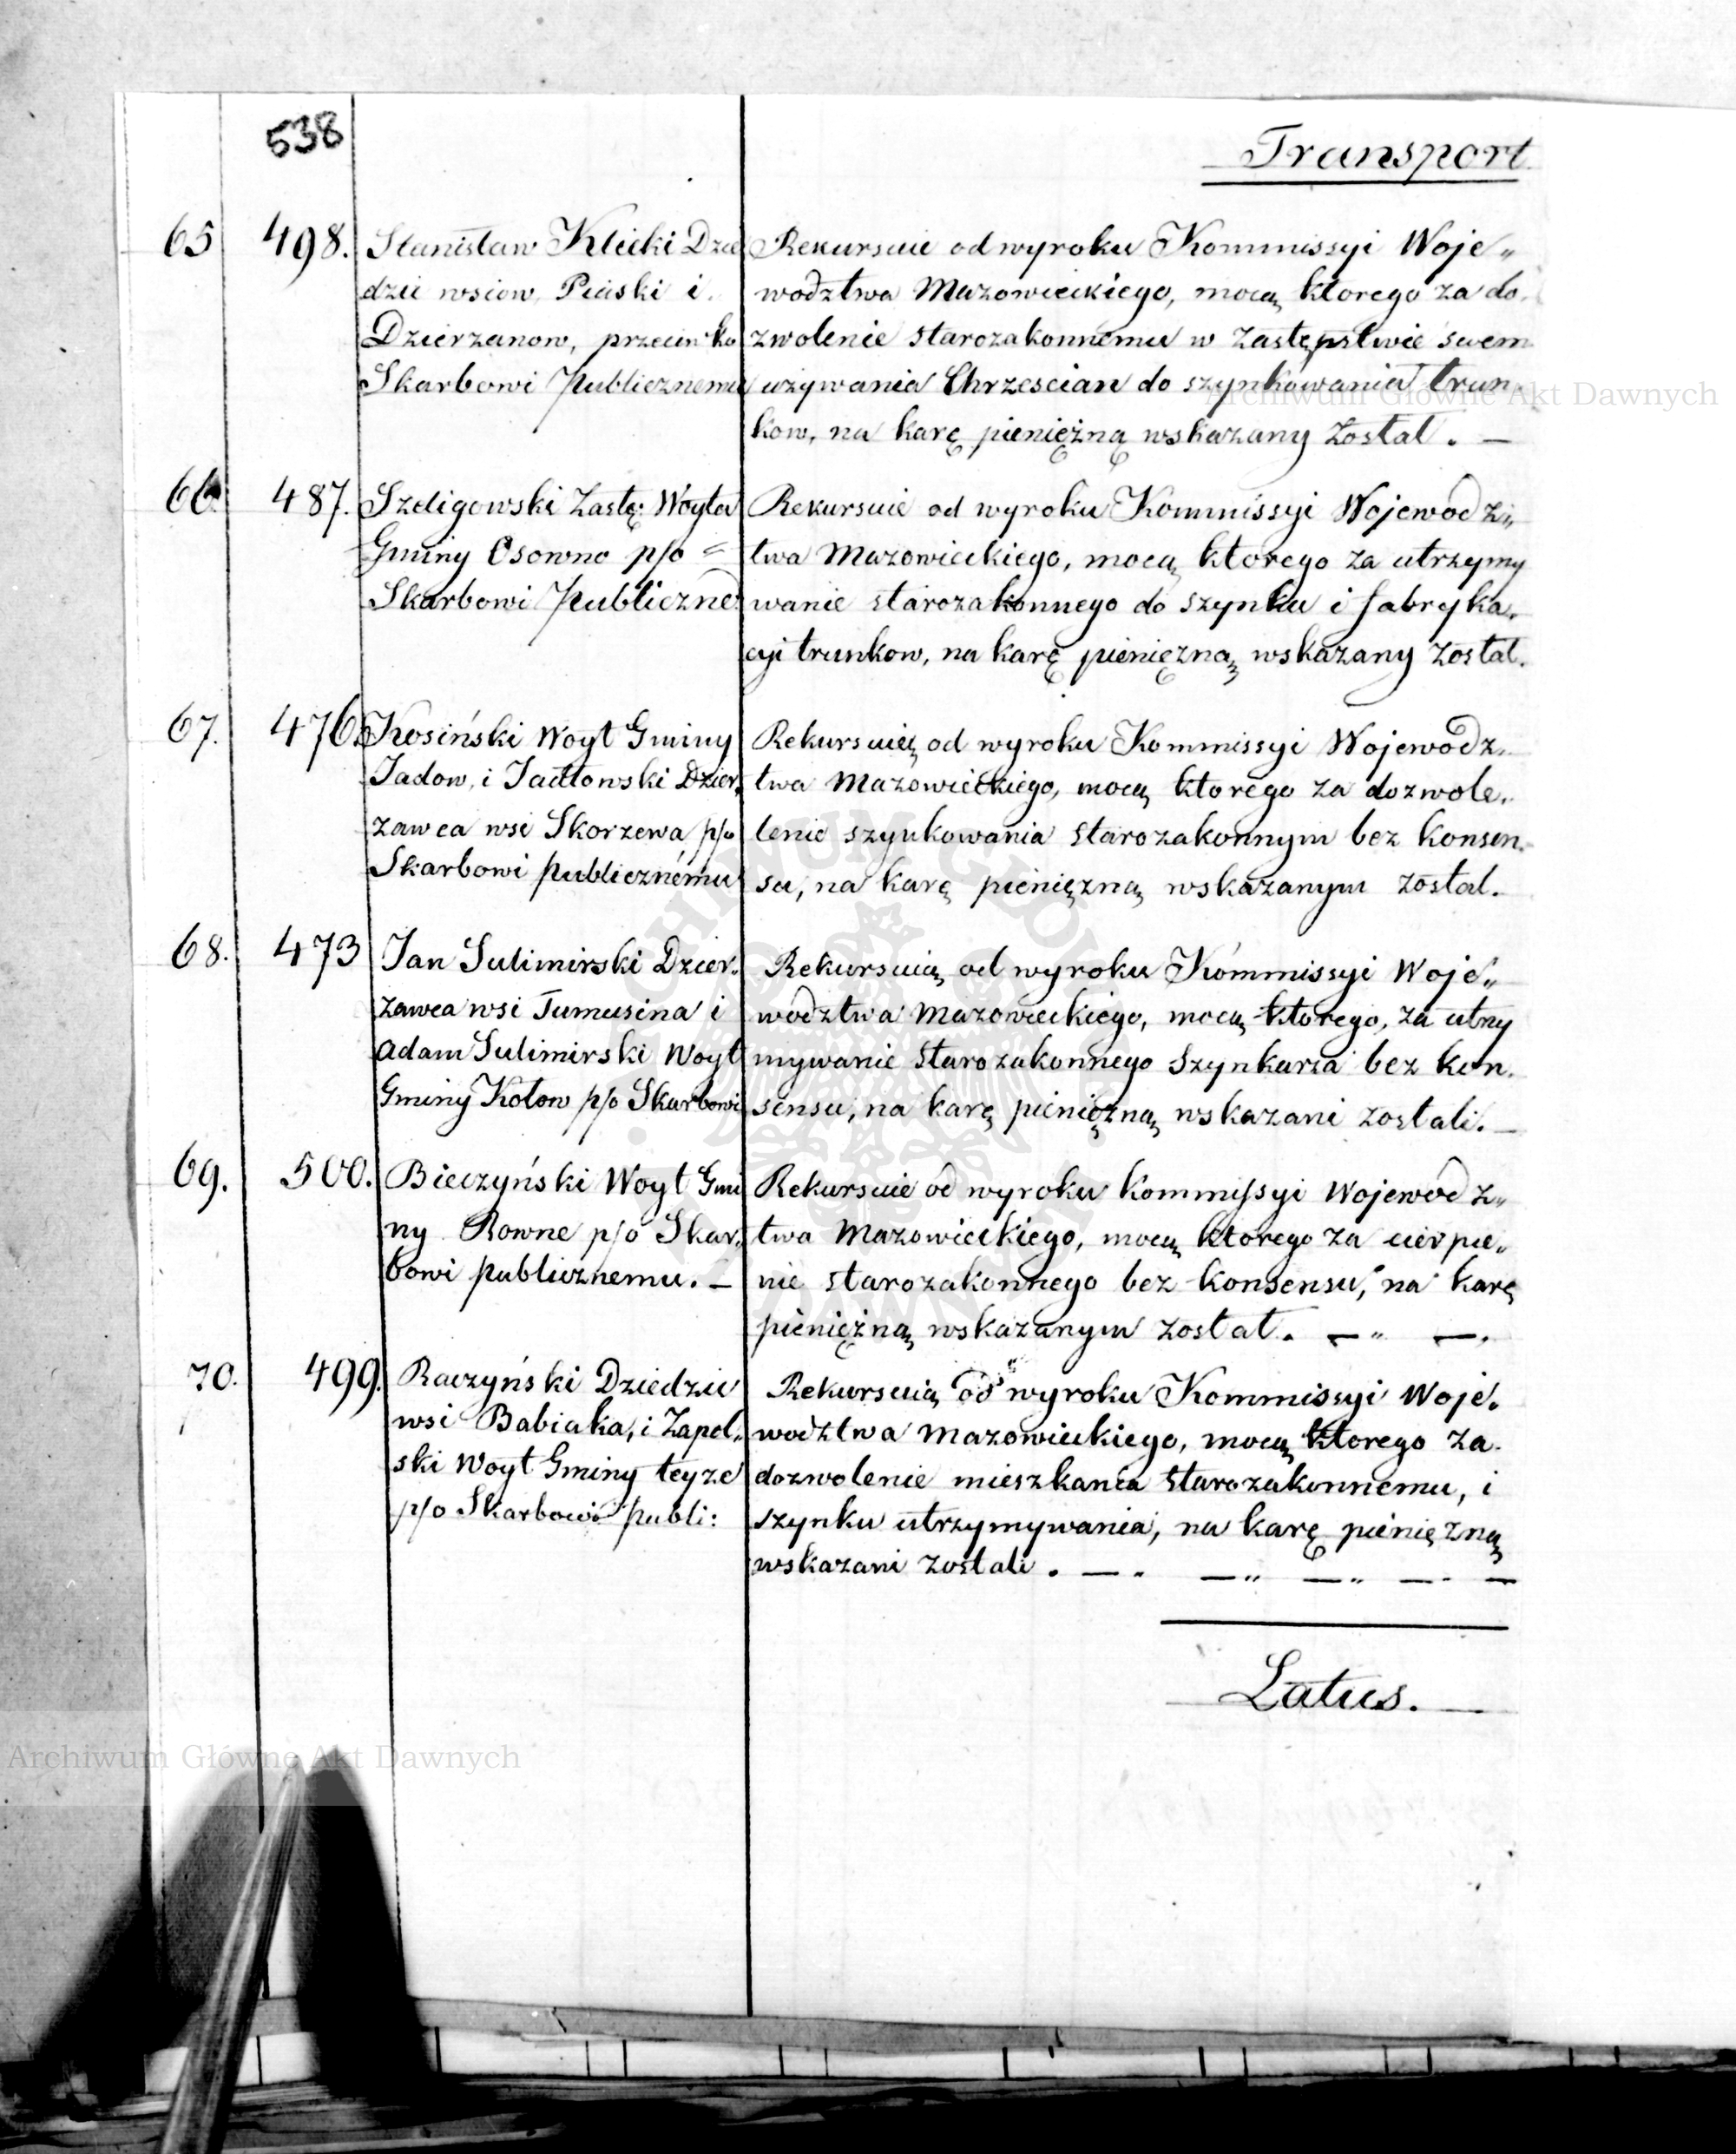 538
Transport
65 498. Stanisław Klicki Dzie
dzic wsiow Piaski i
Dzierzanow, przeciwko
Skarbowi Publicznemu
Rekursuie od wyroku Kommissyi Woje„
wodztwa Mazowieckiego, mocą ktorego za do„
zwolenie starozakonnemu w zastępstwie swem
używania Chrzescian do szynkowania trun„
kow, na karę pieniężną wskazany został. —
66. 487. Szeligowski Zastę: Woyta
Gminy Osowno p/o =
Skarbowi Publiczne
Rekursuie od wyroku Kommissyi Wojewodz„
twa Mazowieckiego, mocą ktorego za utrzymy
wanie starozakonnego do szynku i fabryka„
cyi trunkow, na karę pieniężną wskazany został.
67. 476. Kosiński Woyt Gminy
Jadow, i Jadłowski Dzier„
zawca wsi Skorzewa p/o
Skarbowi publicznému
Rekursuią od wyroku Kommissyi Wojewodz„
twa Mazowieckiego, mocą ktorego za dozwole„
lenie szynkowania starozakonnym bez konsen„
su, na karę pieniężną wskazanym został.
68. 473 Jan Sulimirski Dzier„
zawca wsi Tumusina i
Adam Sulimirski Woyt
Gminy Kotow p/o Skarbowi
Rekursuią od wyroku Kommissyi Woje„
wodztwa Mazowieckiego, mocą ktorego, za utrzy
mywanie starozakonnego szynkarza bez kon„
sensu, na karę pieniężną wskazani zostali. —
69. 500. Bieczyński Woyt Gmi
ny Rowne p/o Skar„
bowi publicznemu. —
Rekursuie od wyroku Kommissyi Wojewodz„
twa Mazowieckiego, mocą ktorego za cierpie„
nie starozakonnego bez konsensu, na karę
pieniężną wskazanym został. — „ —.
70. 499. Raczyński Dziedzic
wsi Babiaka, i Zapol„
ski Woyt Gminy teyze
p/o Skarbowi publi:
Rekursuią od wyroku Kommissyi Woje„
wodztwa Mazowieckiego, mocą ktorego za
dozwolenie mieszkania starozakonnemu, i
szynku utrzymywania, na karę pieniężną
wskazani zostali. —. —„ —„ —. —
Latus.
Archiwum Główne Akt Dawnych
Archiwum Główne Akt Dawnych